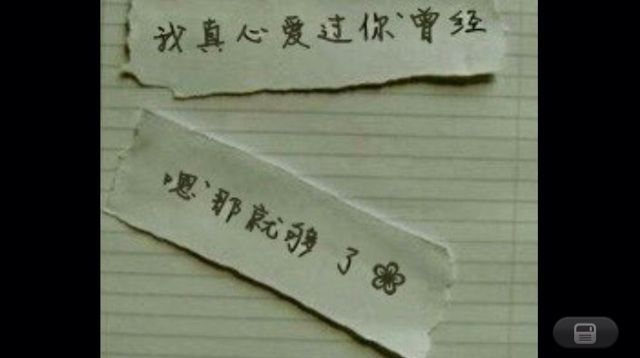 我真心爱过你、曾经
嗯、那就够了